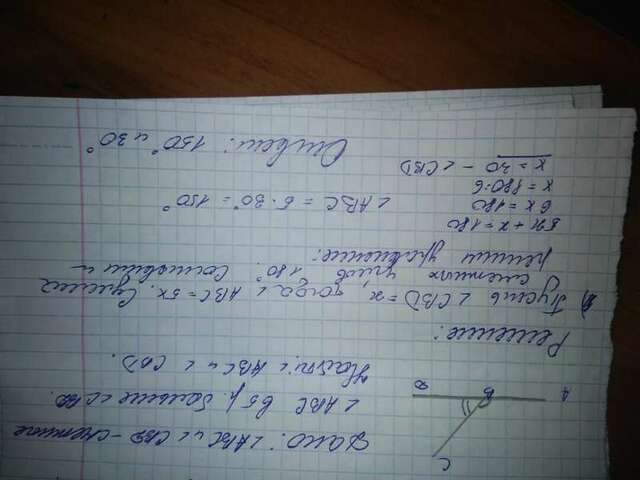 Дано: ∠ABC и ∠CBD - смежные
∠ABC в 5 р. больше ∠CBD.
Найти: ∠ABC и ∠CBD.
C
A B D
Решение:
1) Пусть ∠CBD = x, тогда ∠ABC = 5x. Сумма
смежных углов 180°. Составим и
решим уравнение:
5x + x = 180
6x = 180
x = 180:6
x = 30 - ∠CBD
∠ABC = 5 · 30° = 150°
Ответ: 150° и 30°